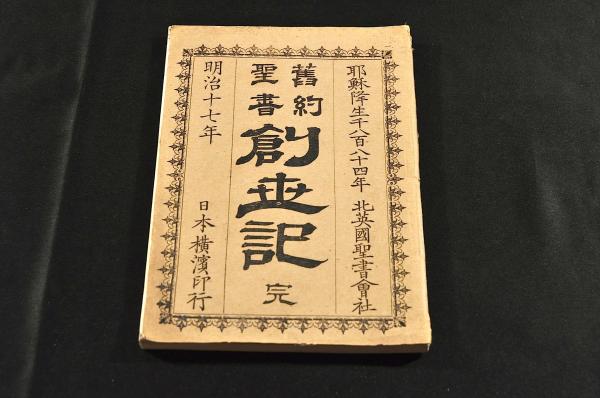 耶穌降生千八百八十四年 北英國聖書會社
舊約
聖書
創世記 完
明治十七年 日本橫濱印行